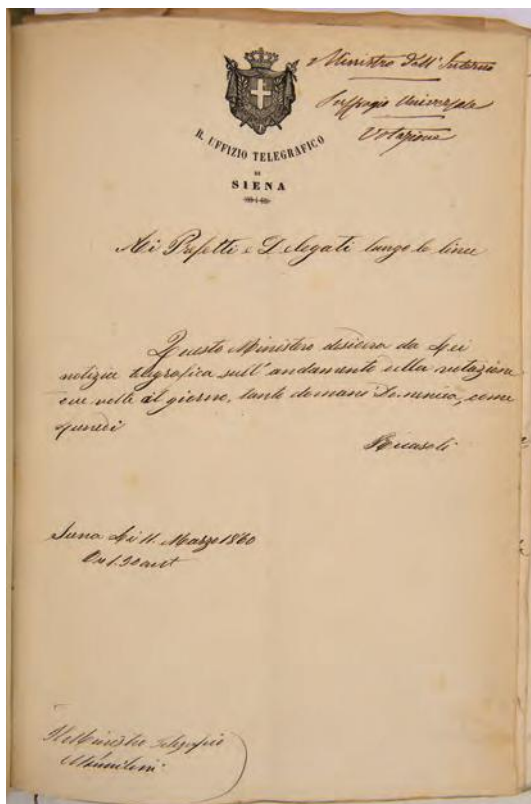 Ministro dell'Interno
Suffragio Universale
Votazione
R. UFFIZIO TELEGRAFICO
DI
SIENA
Ai Prefetti e Delegati lungo le linee
Questo Ministero desidera da Lei
notizia telegrafica sull'andamento della votazione
due volte al giorno, tanto domani Domenica, come
Lunedi
Ricasoli
Siena Li 11. Marzo 1860
Ore 1.30 ant
Il Ministro Telegrafico